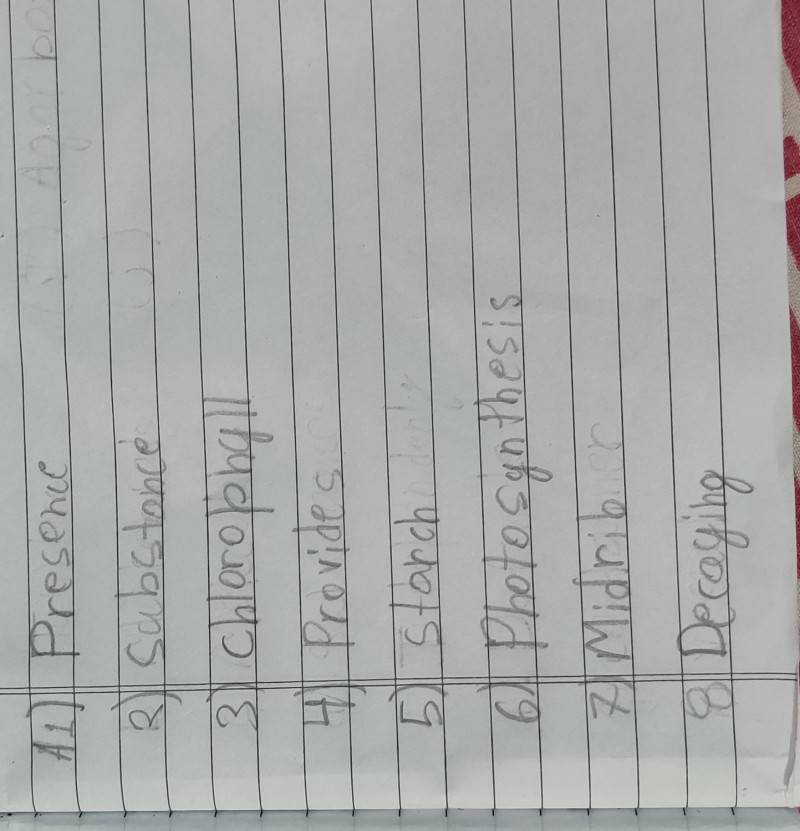 A1) Presence
2) Substance
3) Chlorophyll
4) Provides
5) Starch
6) Photosynthesis
7) Midrib
8 Decaying